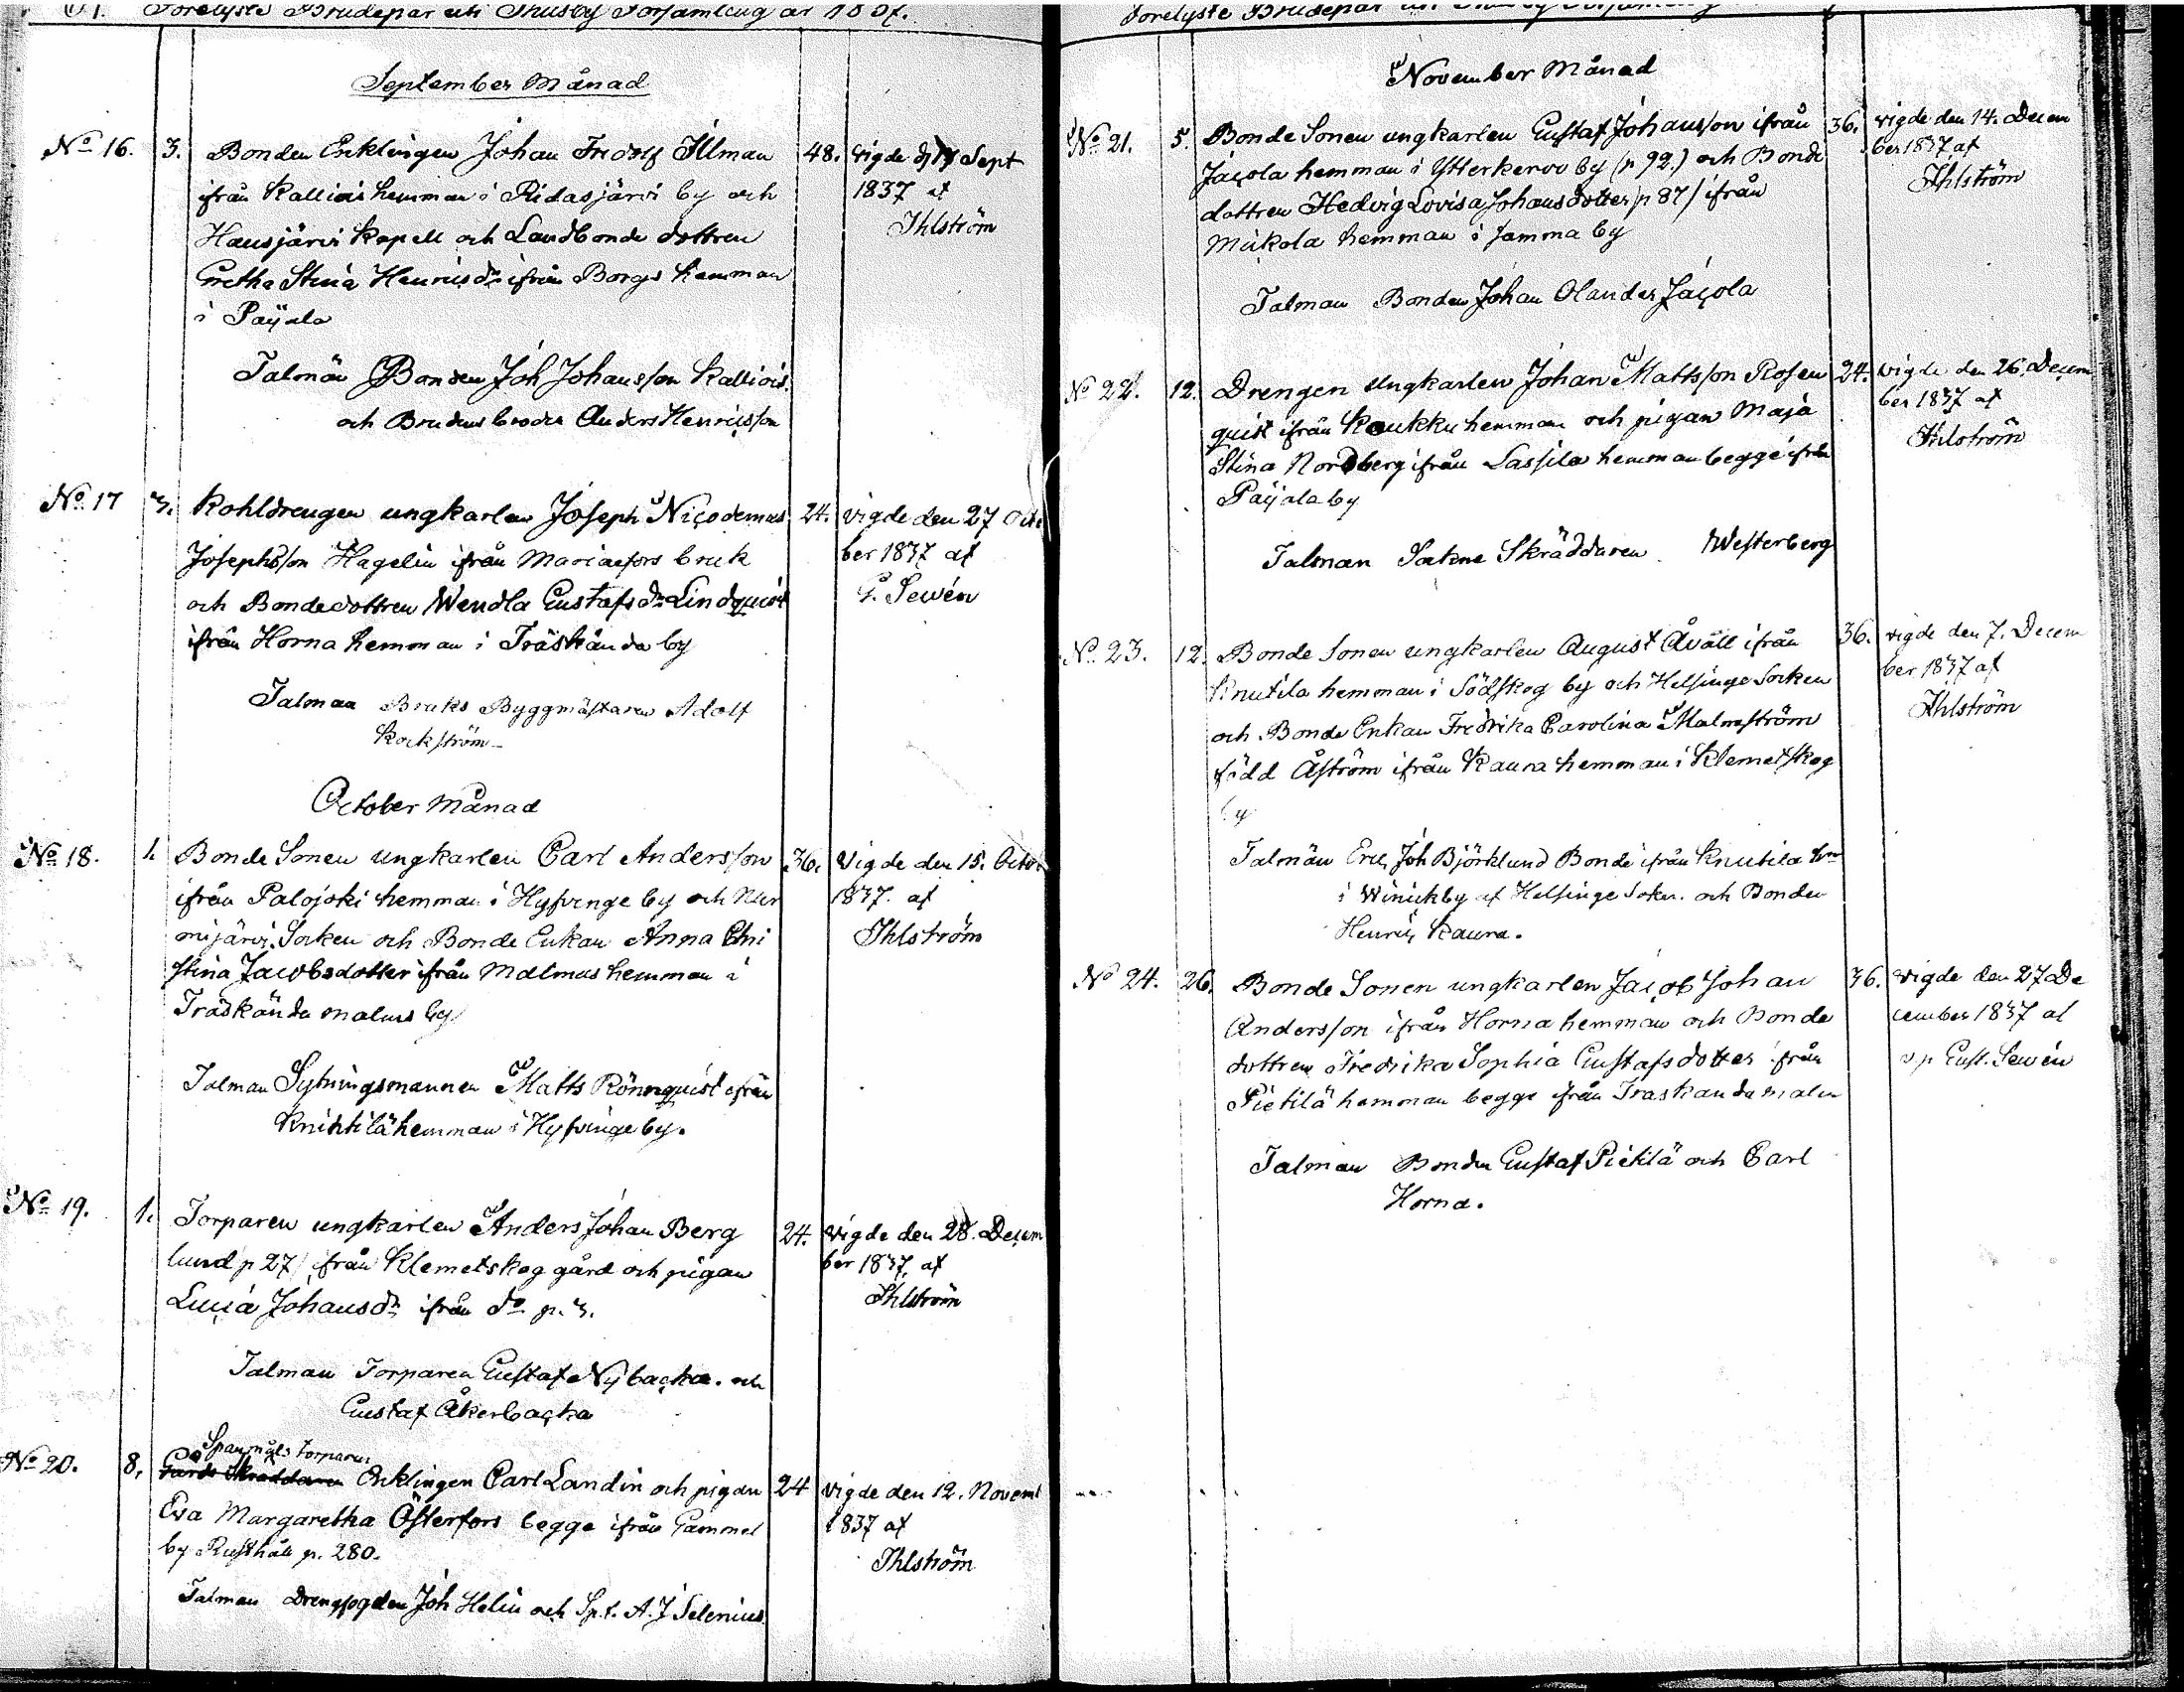 Förelyste Brudepar uti Thusby Församling år 1837.
September Månad
No 16. 3. Bonden Enklingen Johan Fridolf Illman 48. vigde d Sept
ifrån Kalliois hemman i Ridasjärvi by och 1837 af
Hausjärvi Kapell och Landbonde dottren Ihlström
Gretha Stina Henricsdr ifrån Borgs hemman
i Paijala
Talmän Bonden Joh Johansson Kalliois.
och Brudens broder Anders Henricsson
No 17 3. Kohldrengen ungkarlen Joseph Nicodemus 24. vigde den 27 Octo
Josephsson Hagelin ifrån Mariaefors bruk ber 1837 af
och Bondedottren Wendla Gustafs dr Lindquist G. Sewén
ifrån Horna hemman i Träskända by
Talman Bruks Byggmästaren Adolf
Kockström
October Månad
No 18. 1. Bonde Sonen ungkarlen Carl Andersson 36. Vigde den 15. Octo
ifrån Palojoki hemman i Hyfvinge by och Nur 1837. af
mijärvi Socken och Bonde Enkan Anna Chri Ihlström
stina Jacobsdotter ifrån Malmus hemman i
Träskända malms by
Talman Sytningsmannen Matts Rönnquist ifrån
Knihtilä hemman i Hyfvinge by.
No 19. 1. Torparen ungkarlen Anders Johan Berg 24. vigde den 28. Decem
lund p 27/ ifrån Klemetskog gård och pigan ber 1837, af
Lucia Johansdr ifrån do p. 3. Ihlström
Talman Torparen Gustaf Nybacka. och
Gustaf Åkerbacka
Spanmåls torparen
No 20. 8. Gårds Skräddaren Enklingen Carl Landin och pigan 24 vigde den 12. Novemb
Eva Margaretha Österfors begge ifrån Gammel 1837 af
by Rusthåll p. 280. Ihlström
Talman Drengfogden Joh Helin och Sp.t. A. J Selenius
Förelyste Brudepar
November Månad
No 21. 5. Bonde Sonen ungkarlen Gustaf Johansson ifrån 36. vigde den 14. Decem
Jacola hemman i Ytterkervo by (p 92.) och Bonde ber 1837 af
dottren Hedvig Lovisa Johansdotter p 87/ ifrån Ihlström
Mickola hemman i samma by
Talman Bonden Johan Olander Jacola
No 22. 12. Drengen Ungkarlen Johan Mattsson Rosen 24. vigde den 26. Decem
quist ifrån Koukku hemman och pigan Maja ber 1837 af
Stina Nordberg ifrån Lassila hemman begge ifrån Ihlström
Paijala by
Talman Sockne Skräddaren Westerberg
No 23. 12. Bonde Sonen ungkarlen August Åvall ifrån 36. vigde den 7. Decem
Knutila hemman i Södskog by och Helsinge Socken ber 1837 af
och Bonde Enkan Fredrika Carolina Malmström Ihlström
född Åström ifrån Kaura hemman i Klemetskog
by
Talmän Eric Joh Björklund Bonde ifrån Knutila hm
i Winickby af Helsinge Soken. och Bonden
Henric Kaura.
No 24. 26. Bonde Sonen ungkarlen Jacob Johan 36. vigde den 27 De
Andersson ifrån Horna hemman och Bonde cember 1837 af
dottren Fredrika Sophia Gustafsdotter ifrån v. p. Gust. Sewén
Pietilä hemman begge ifrån Träskända malm
Talman Bonden Gustaf Pietilä och Carl
Horna.